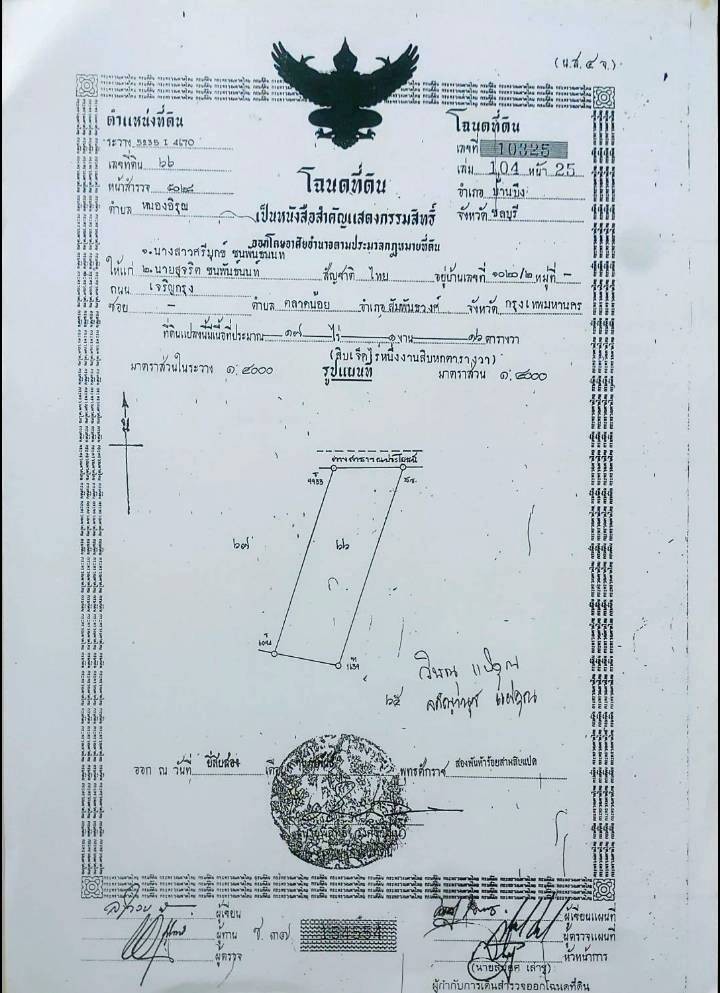 (น.ส. ๔ จ.)
ตำแหน่งที่ดิน
ระวาง 5235 I 4670
เลขที่ดิน ๖๖
หน้าสำรวจ ๕๐๒๘
ตำบล หนองอิรุณ
โฉนดที่ดิน
เลขที่ 10325
เล่ม 104 หน้า 25
อำเภอ บ้านบึง
จังหวัด ชลบุรี
โฉนดที่ดิน
เป็นหนังสือสำคัญแสดงกรรมสิทธิ์
ออกโดยอาศัยอำนาจตามประมวลกฎหมายที่ดิน
๑.นางสาวศรีมุกข์ ชนพันธ์นนท์
ให้แก่ ๒.นายสุจริต ชนพันธ์นนท์ สัญชาติ ไทย อยู่บ้านเลขที่ ๑๐๒๐/๒ หมู่ที่ -
ถนน เจริญกรุง
ซอย - ตำบล ตลาดน้อย อำเภอ สัมพันธวงศ์ จังหวัด กรุงเทพมหานคร
ที่ดินแปลงนี้มีเนื้อที่ประมาณ ๑๗ ไร่ ๑ งาน ๑๖ ตารางวา
(สิบเจ็ดไร่หนึ่งงานสิบหกตารางวา)
มาตราส่วนในระวาง ๑:๔๐๐๐ รูปแผนที่ มาตราส่วน ๑:๔๐๐๐
น
ทางสาธารณประโยชน์
๖๗ ๖๖
๖๕
ออก ณ วันที่ ยี่สิบสอง เดือน พุทธศักราช สองพันห้าร้อยสามสิบแปด
ผู้เขียน
ผู้ทาน
ผู้ตรวจ
ช ๓๗
ผู้เขียนแผนที่
ผู้ตรวจแผนที่
หัวหน้าการ
ผู้กำกับการเดินสำรวจออกโฉนดที่ดิน